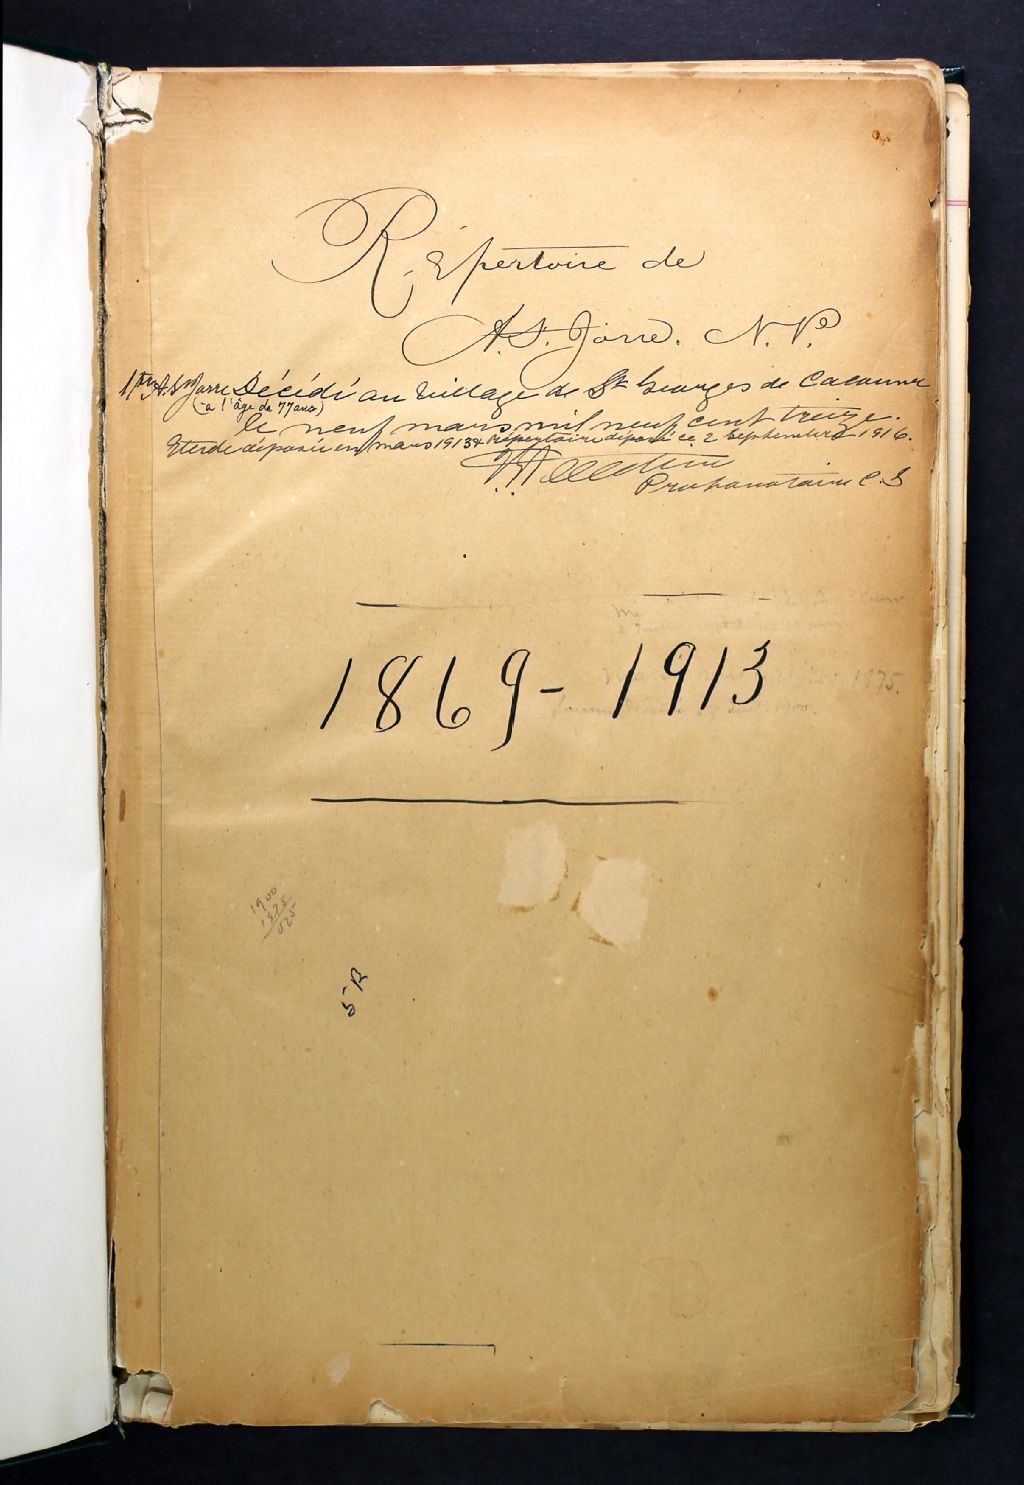 Répertoire de
A. S. Jarre. N. P.
Mtre A. S Jarre Décédé au village de St Georges de Cacouna
(à l'âge de 77 ans)
le neuf mars mil neuf cent treize.
Etude déposée en mars 1913 & Répertoire déposé ce 2 Septembre 1916.
Prothonotaire C.S
1869-1913
1875.
1900
1875
025
5 R